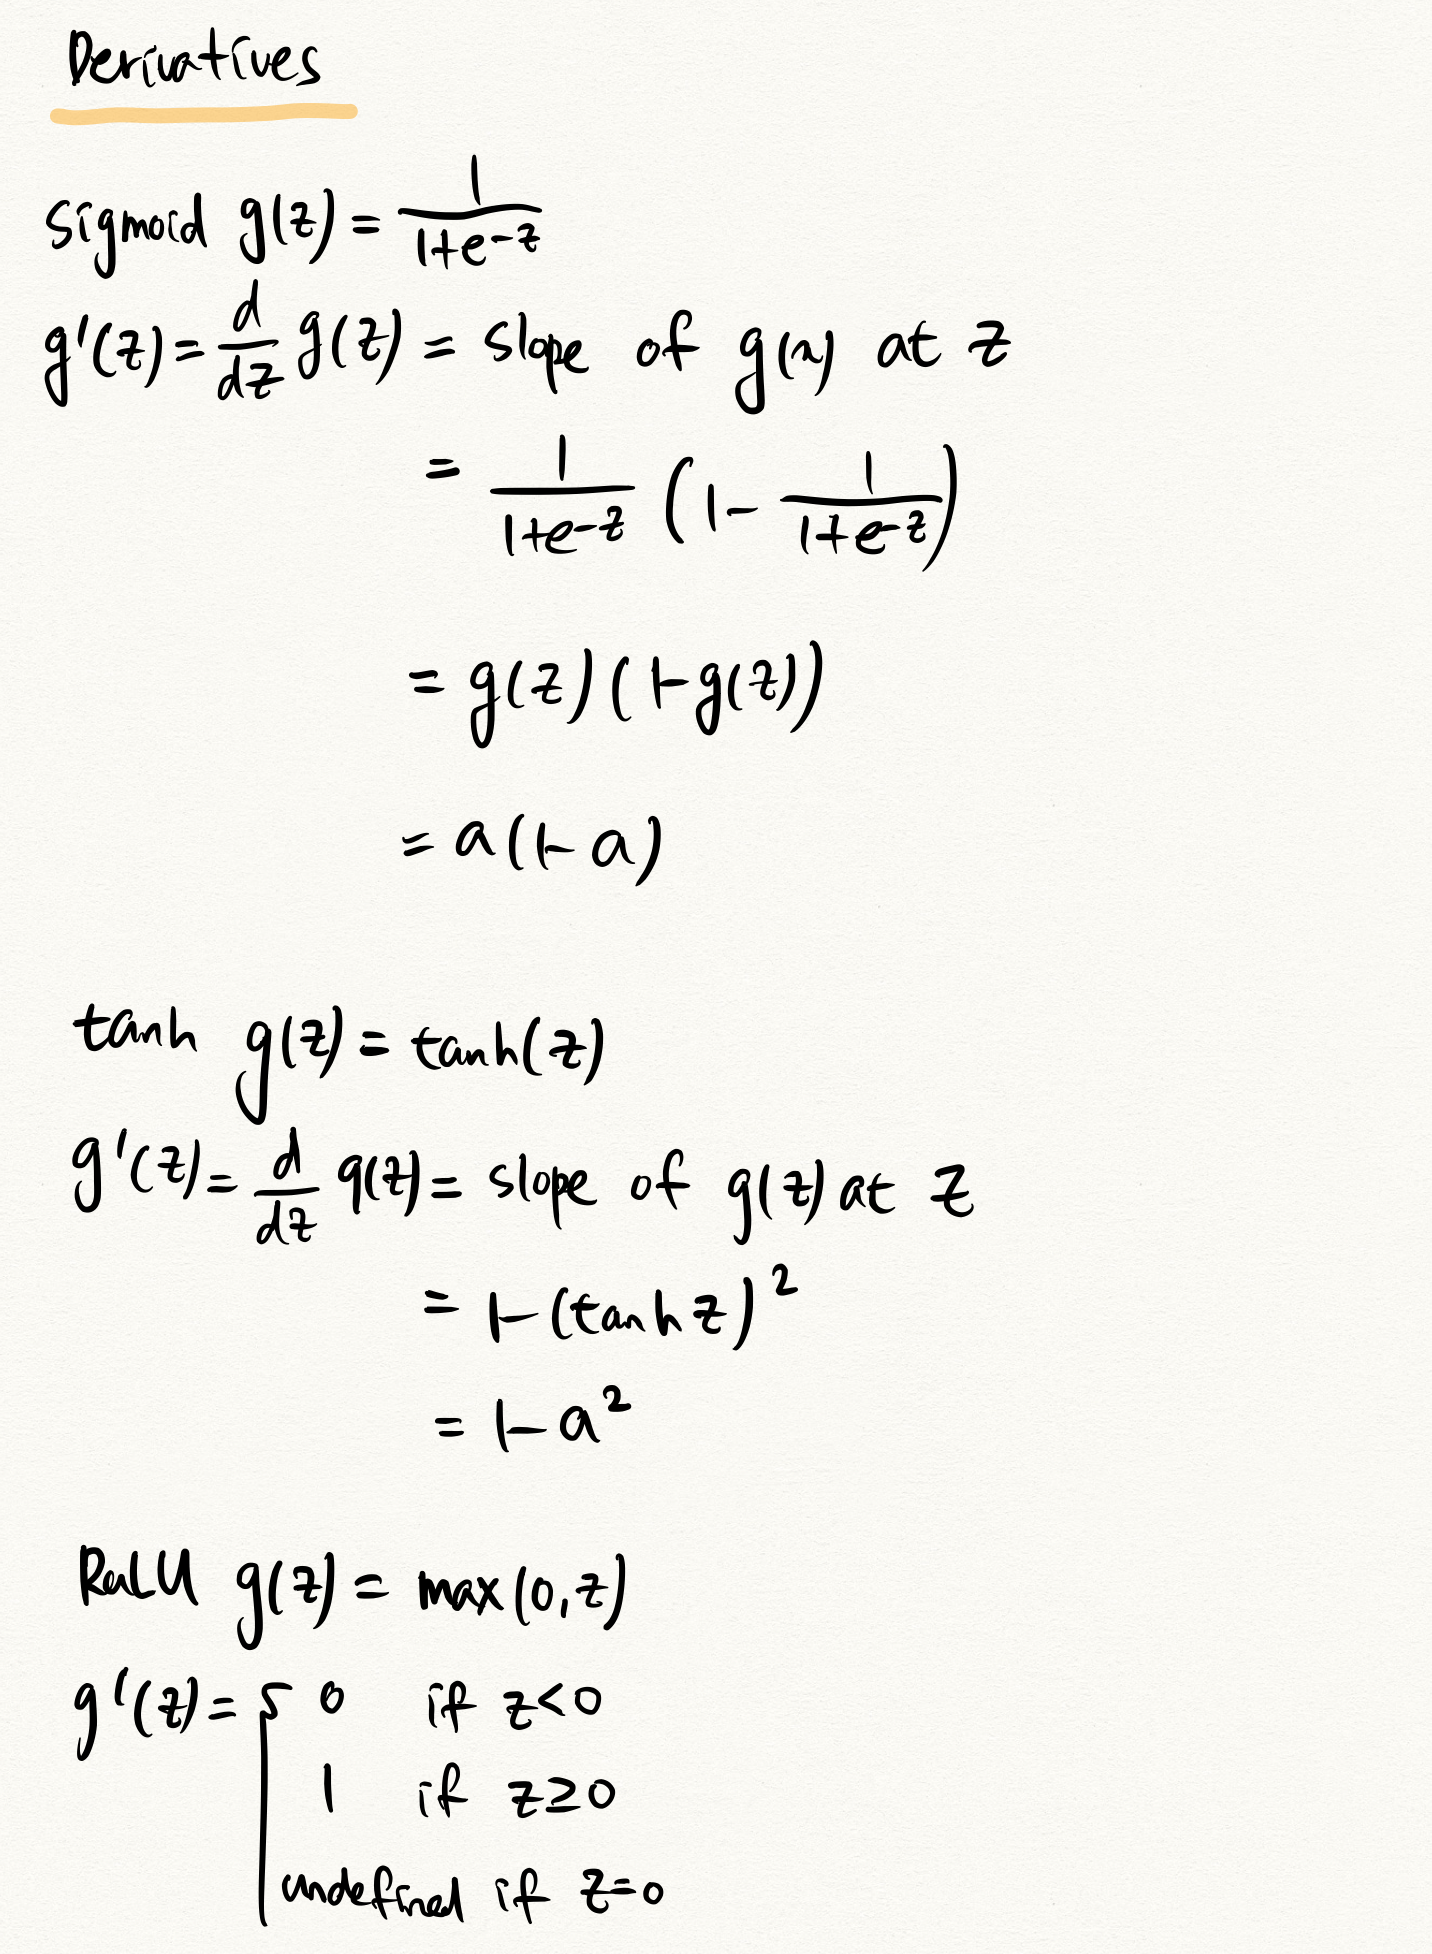 Derivatives
sigmoid g(z) = 1/(1+e^-z)
g'(z) = d/dz g(z) = slope of g(x) at z
= 1/(1+e^-z) (1 - 1/(1+e^-z))
= g(z)(1-g(z))
= a(1-a)
tanh g(z) = tanh(z)
g'(z) = d/dz g(z) = slope of g(z) at z
= 1-(tanh z)^2
= 1-a^2
ReLU g(z) = max(0,z)
g'(z) = { 0 if z<0
1 if z≥0
undefined if z=0